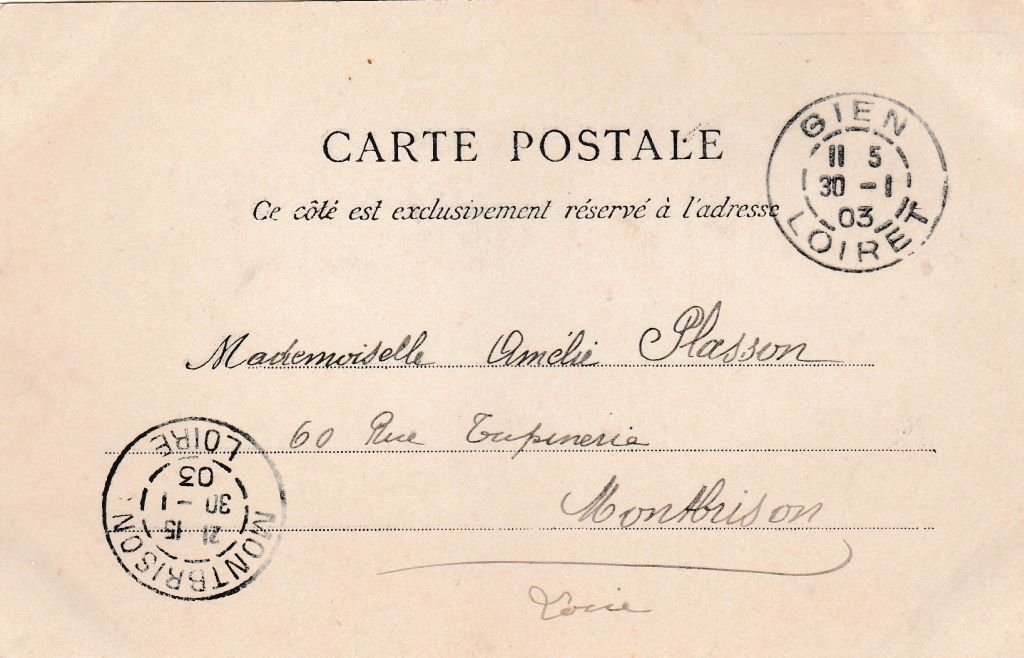 CARTE POSTALE
Ce côté est exclusivement réservé à l'adresse
GIEN
11 5
30 - 1
03
LOIRET
Mademoiselle Amélie Plasson
60 Rue Tupinerie
Montbrison
Loire
MONTBRISON
21 15
30 - 1
03
LOIRE